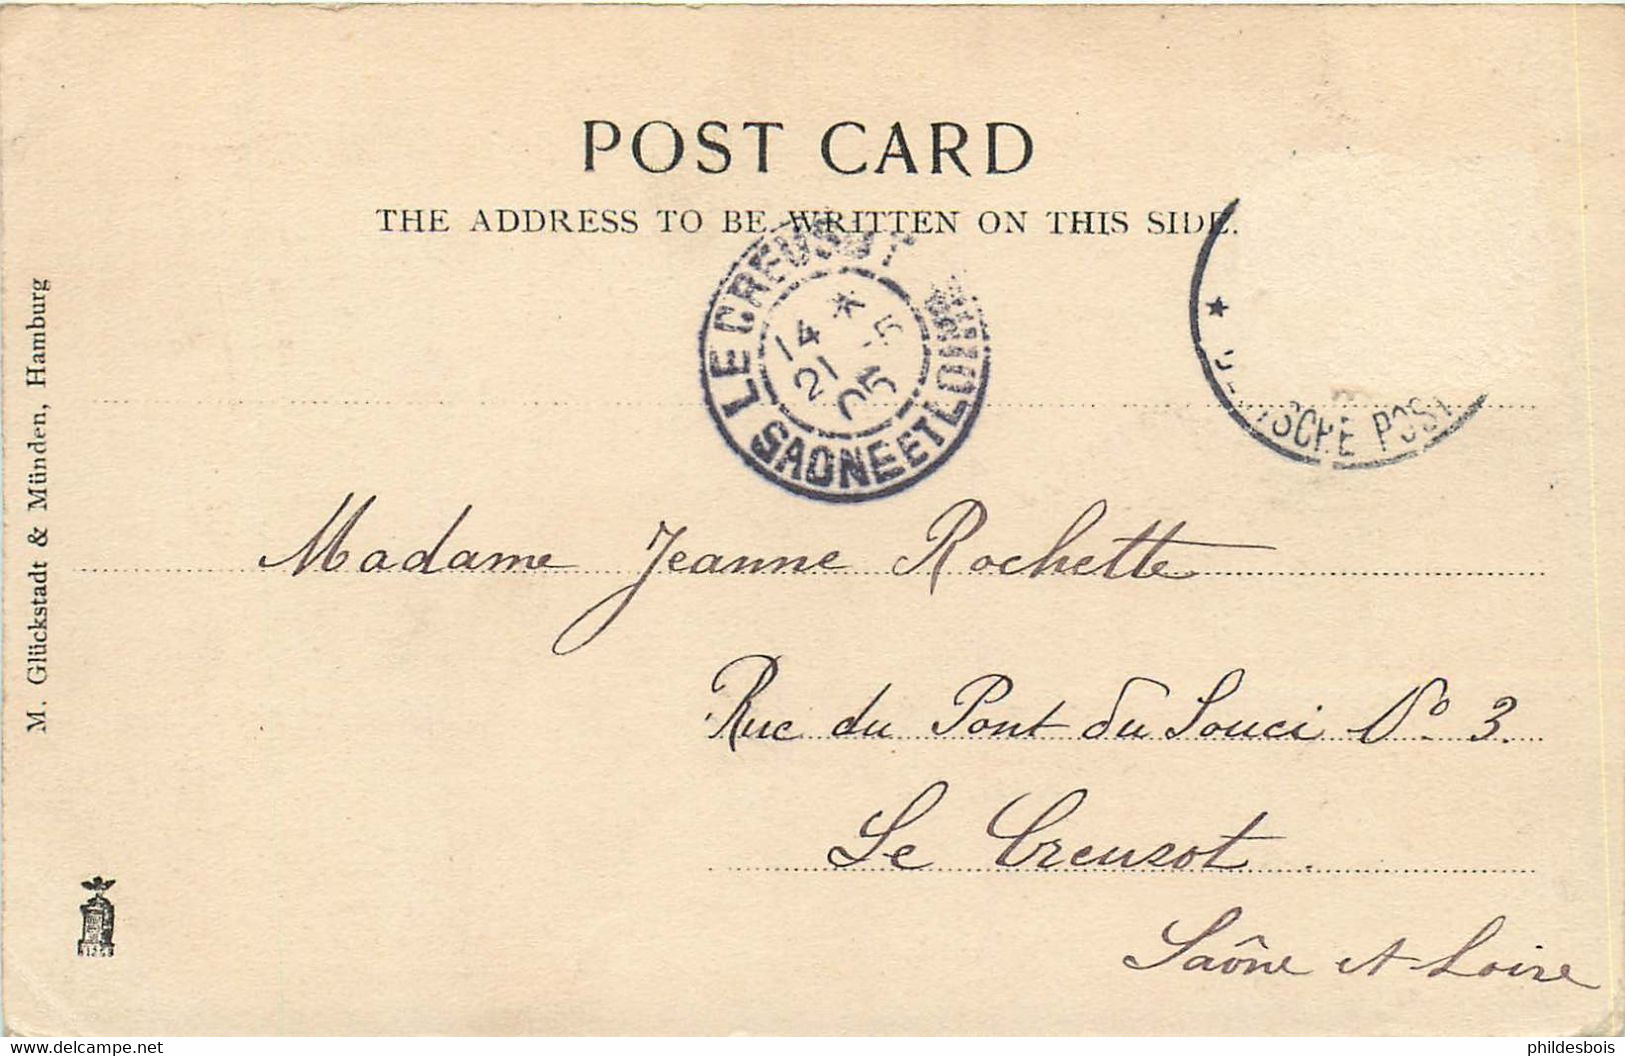 POST CARD
THE ADDRESS TO BE WRITTEN ON THIS SIDE.
LE CREUSOT
SAONE ET LOIRE
14 * 5
21
05
* DEUTSCHE POST
M. Glückstadt & Münden, Hamburg
Madame Jeanne Rochette
Rue du Pont du Souci No 3.
Le Creuzot
Saône et Loire
delcampe.net
phildesbois